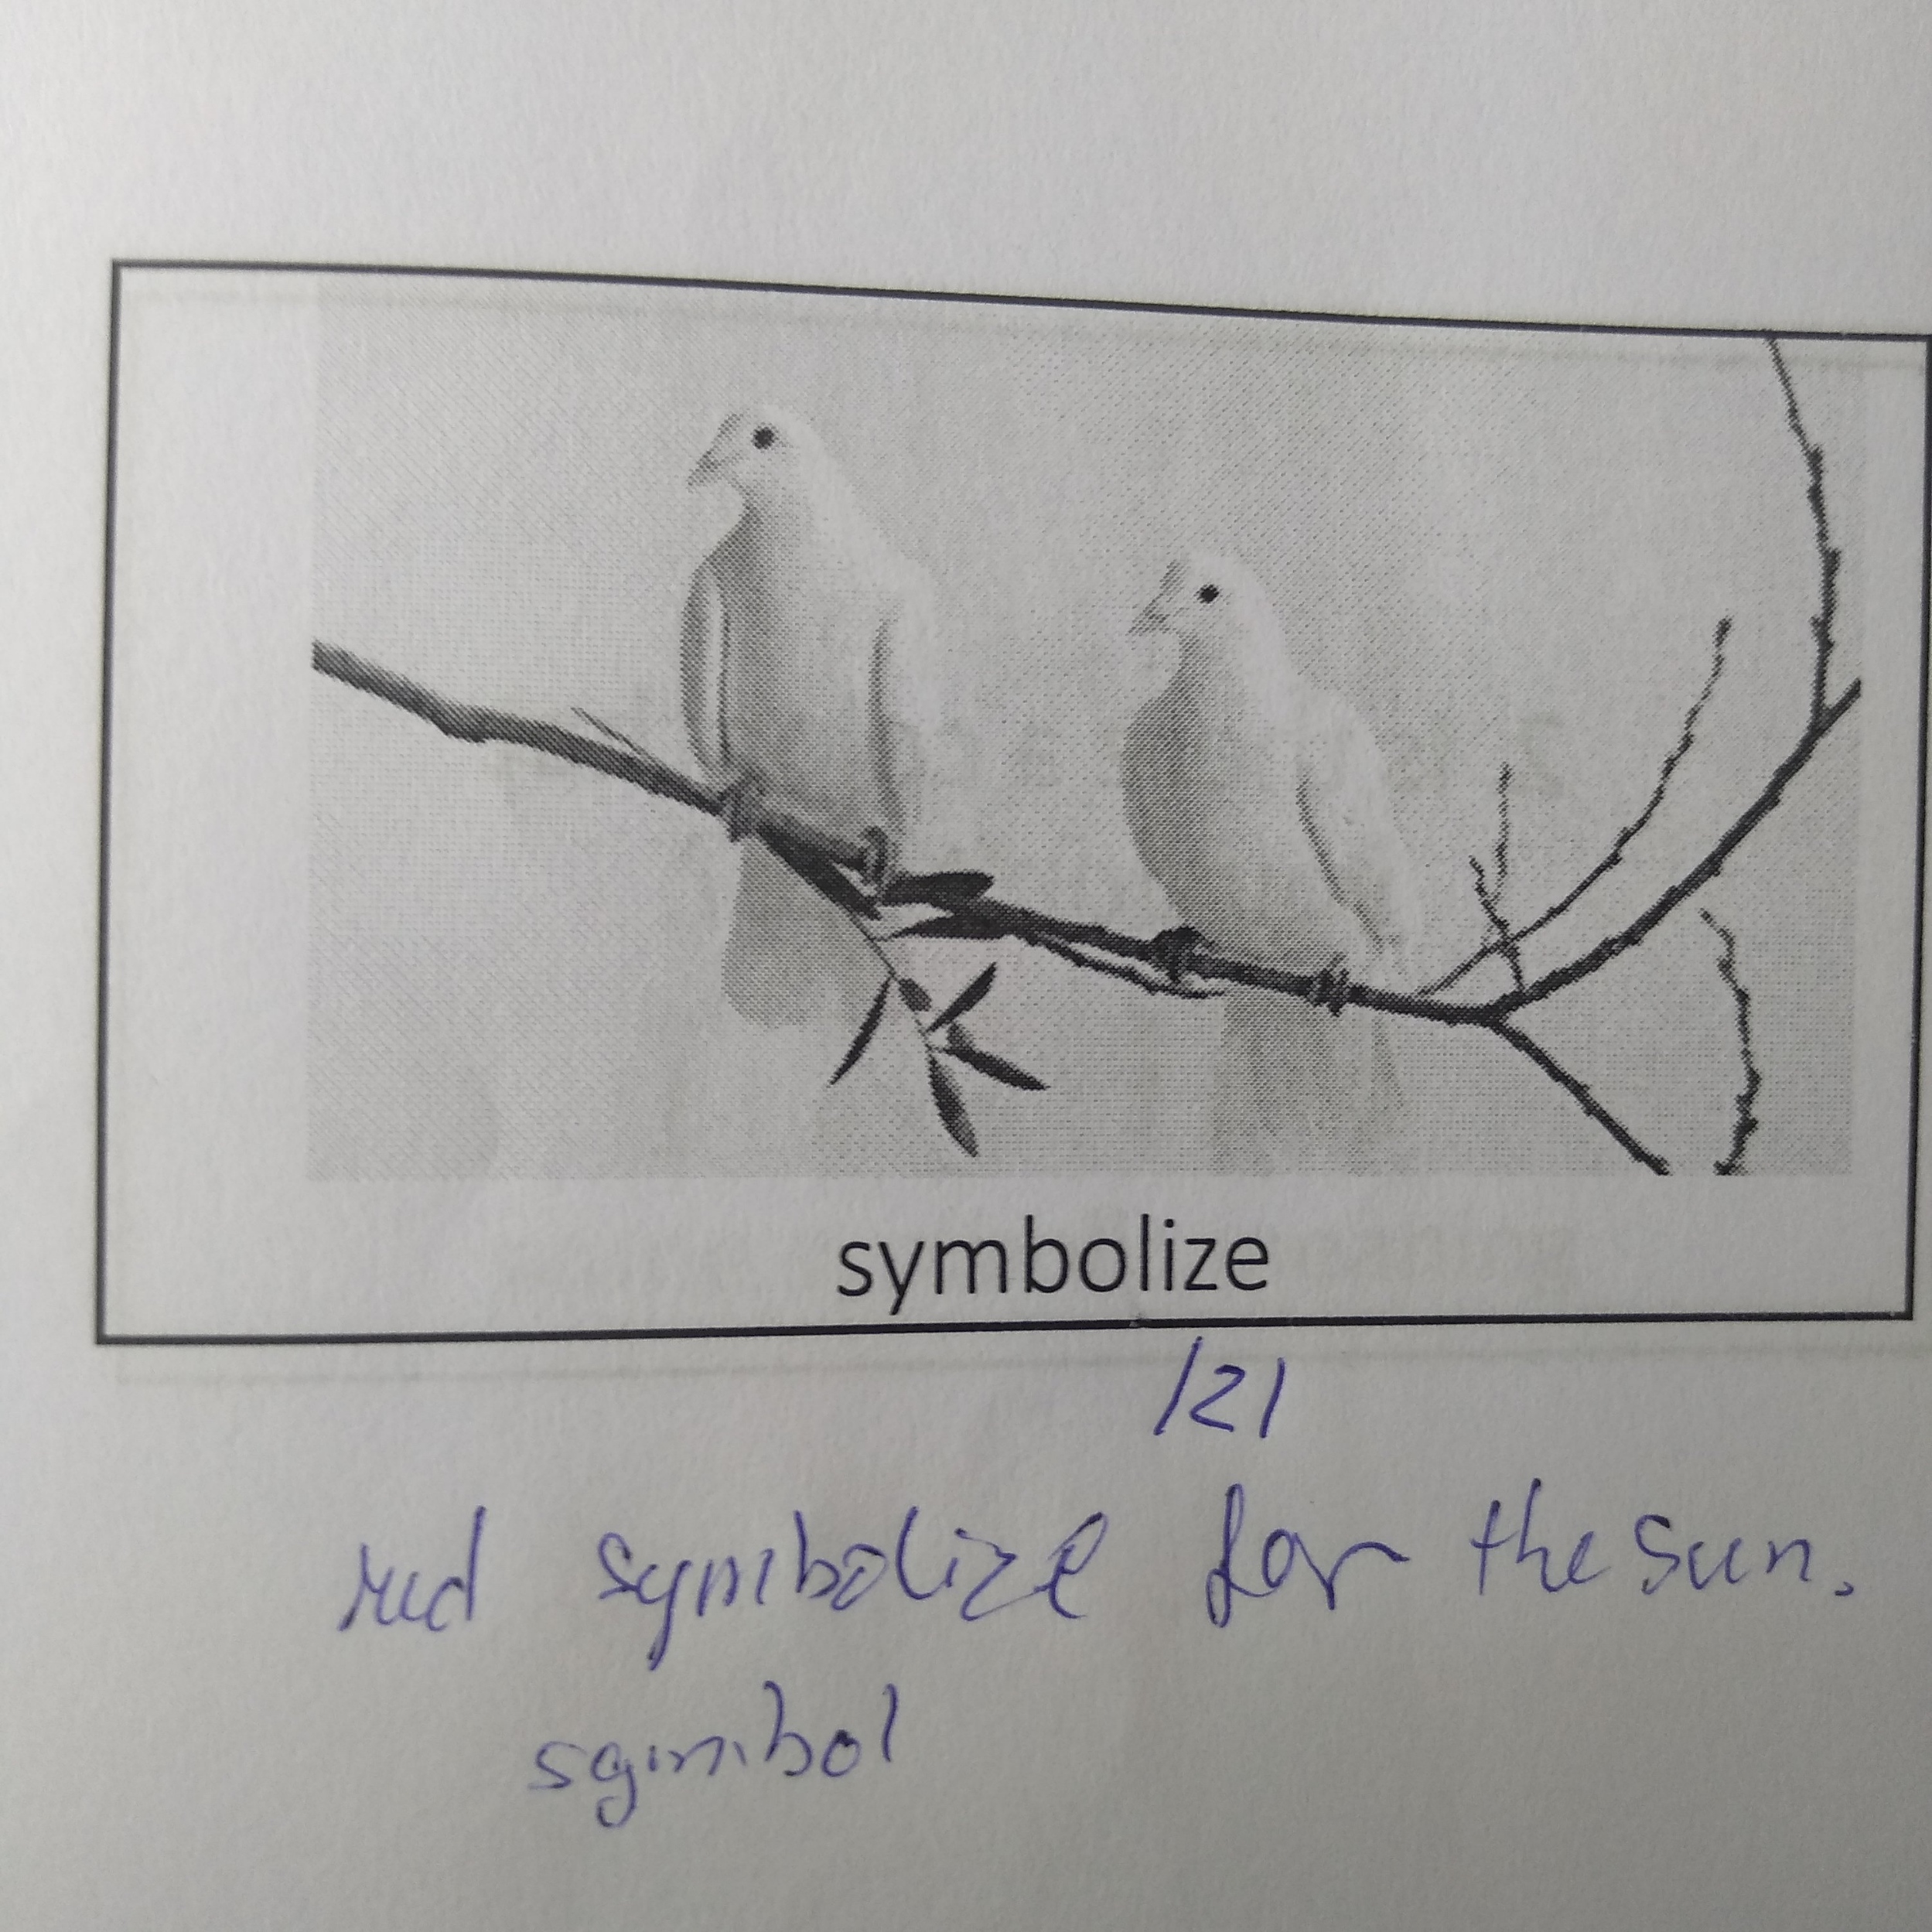 symbolize
/z/
red symbolize for the sun.
symbol